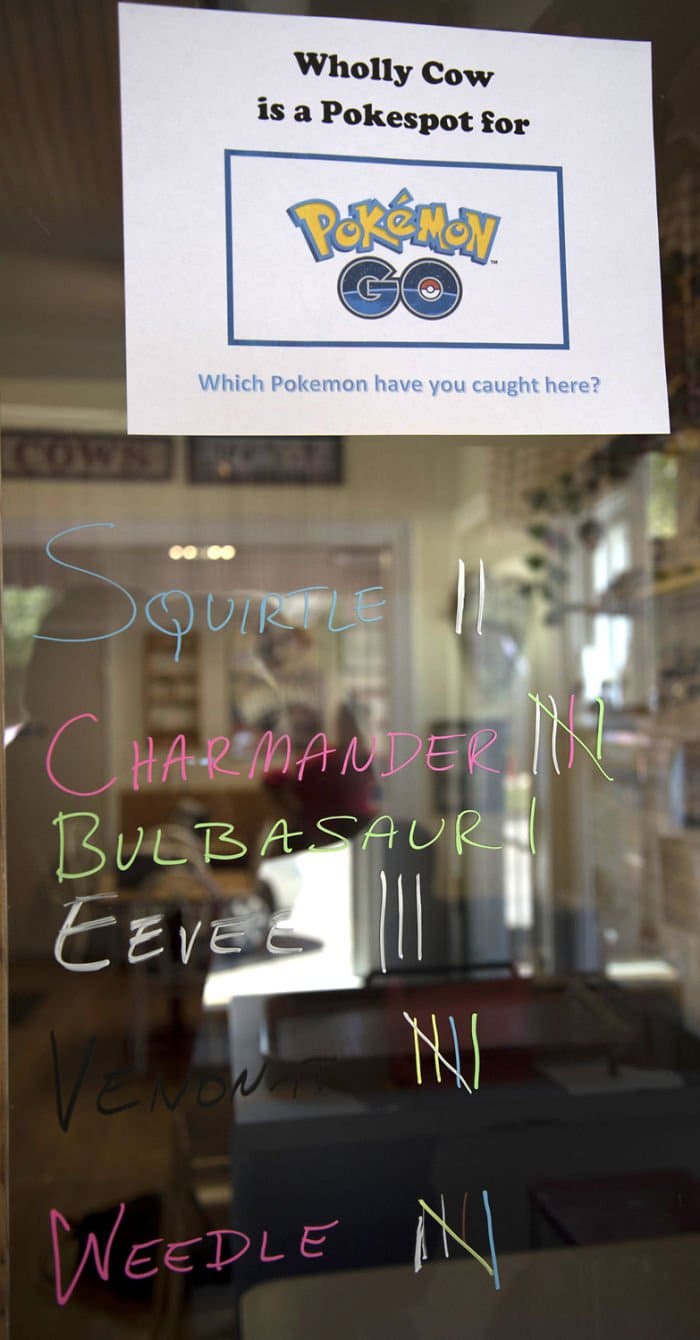 Wholly Cow
is a Pokespot for
POKéMON
™
GO
Which Pokemon have you caught here?
COWS
SQUIRTLE ||
CHARMANDER ||||
BULBASAUR |
EEVEE |||
VENONAT ||||
WEEDLE ||||